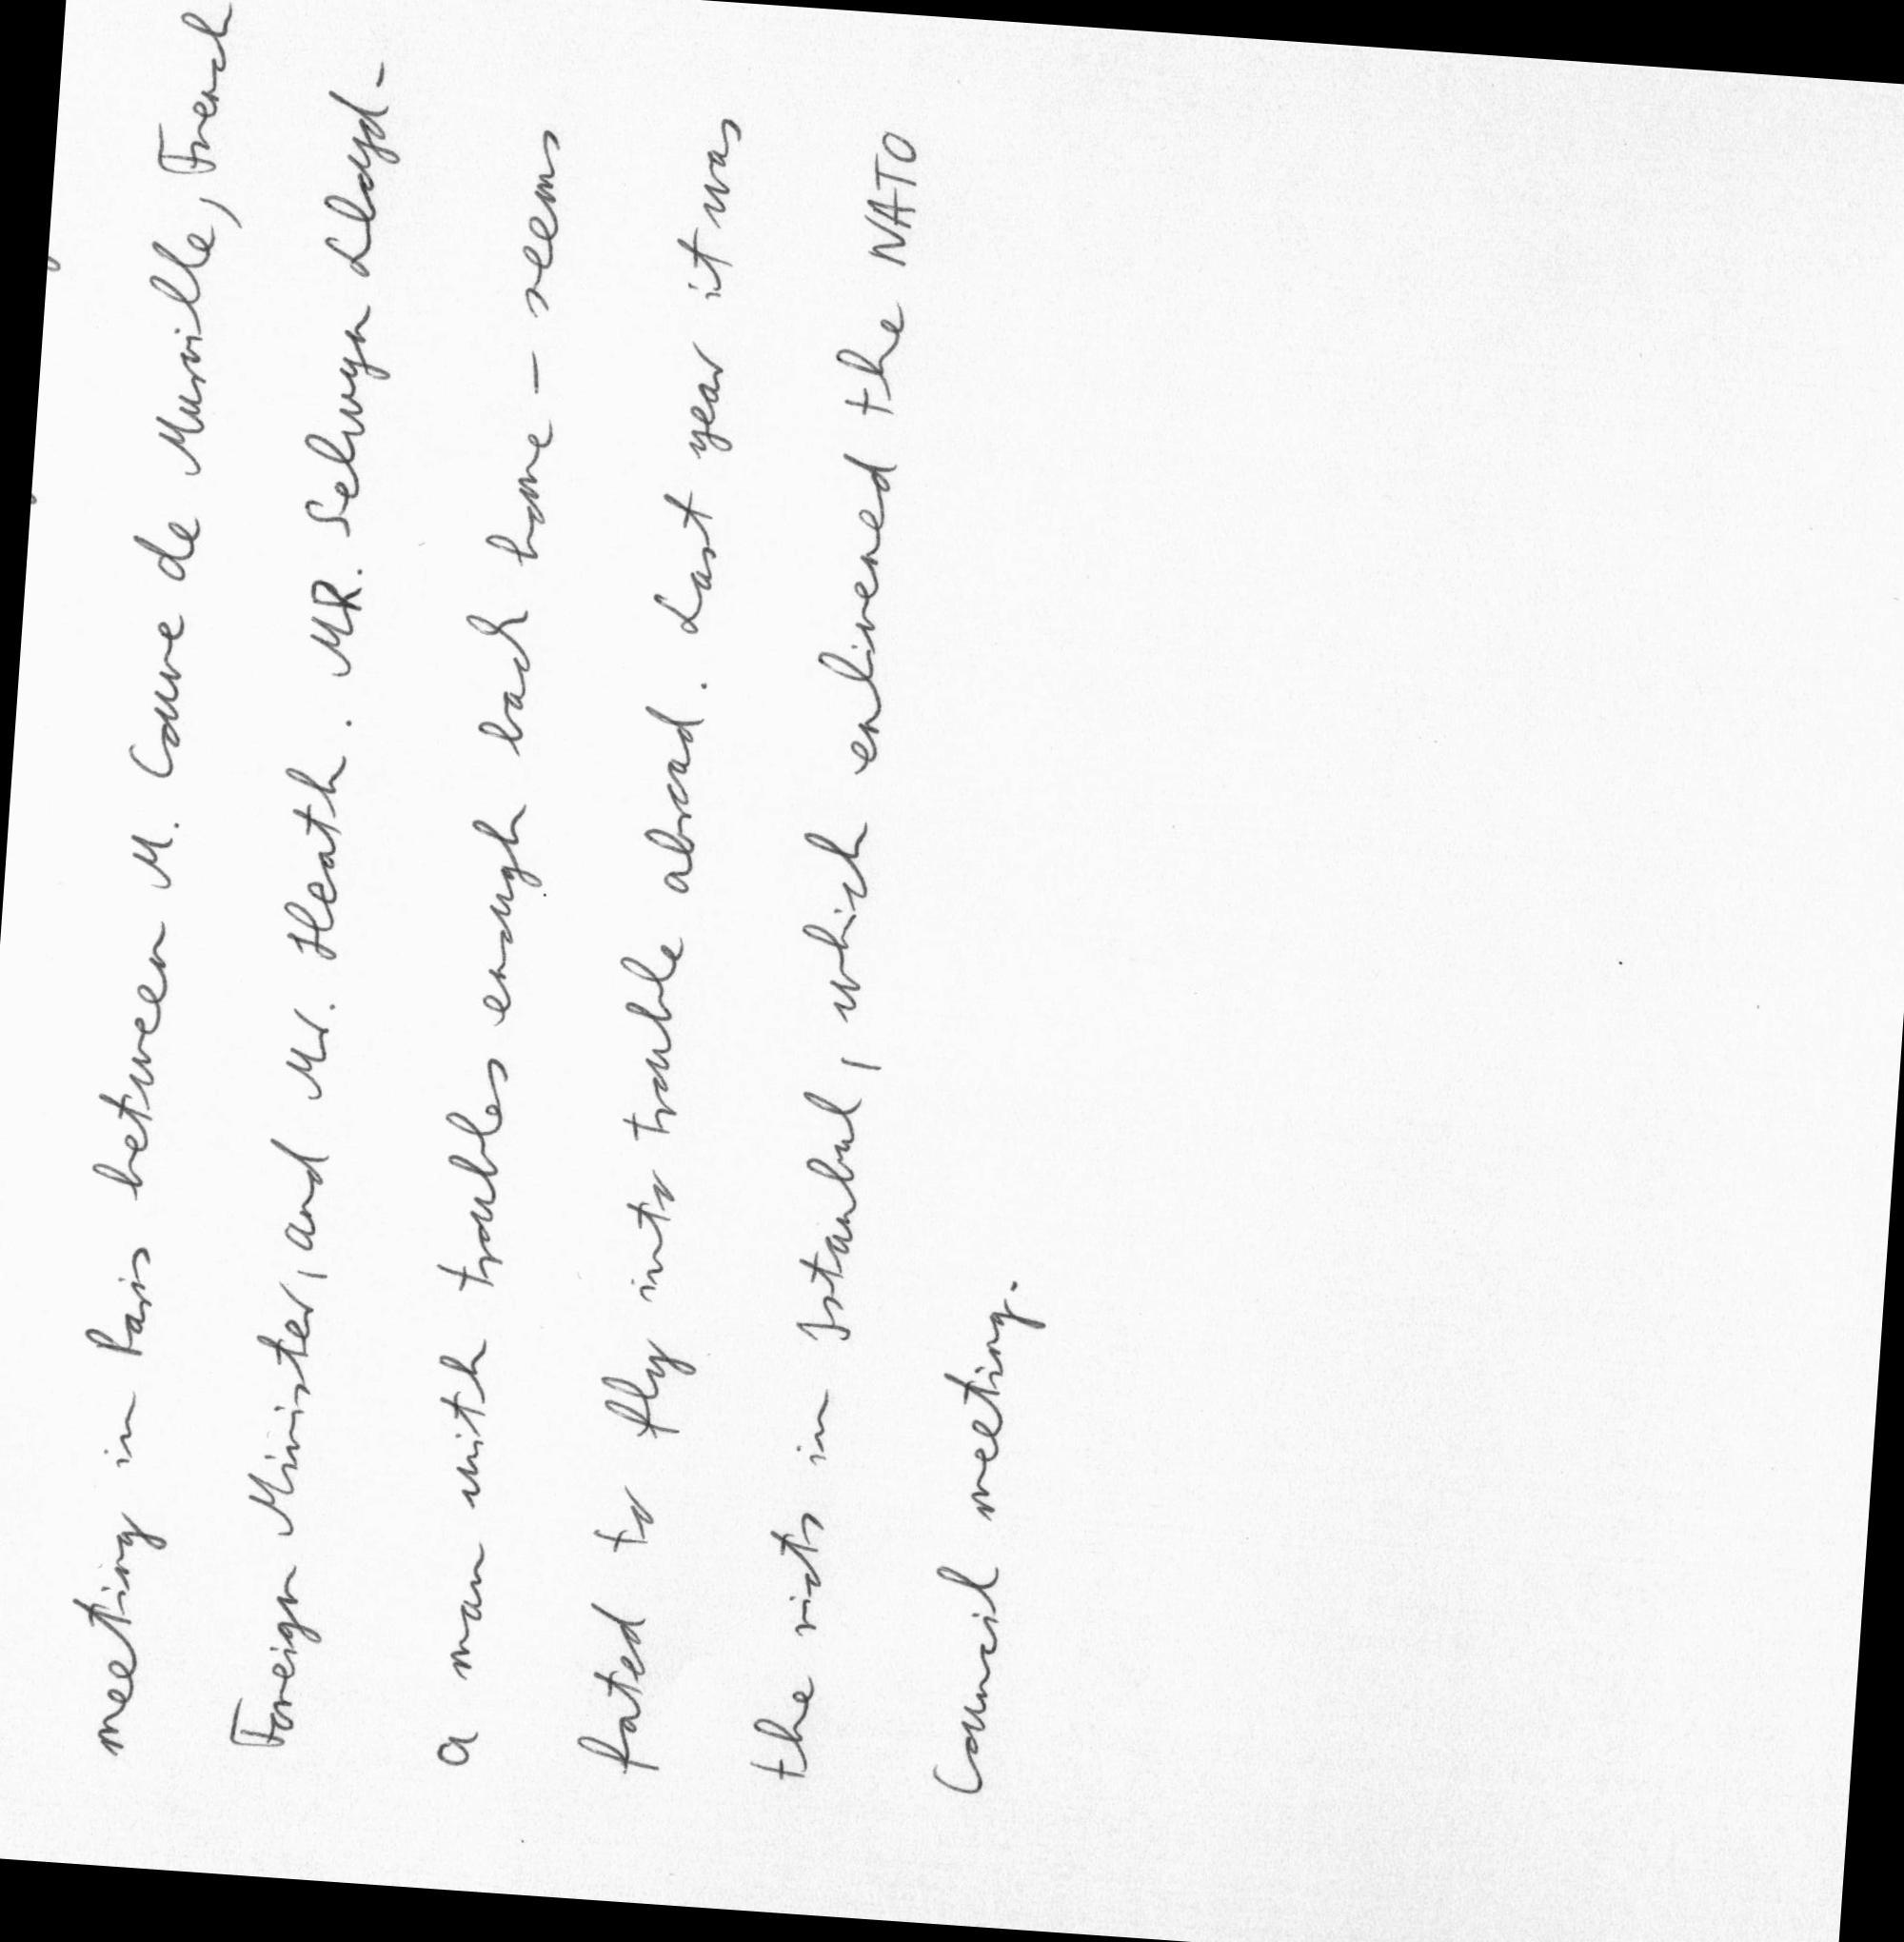 meeting in Paris between M. Couve de Murville, French
Foreign Minister, and Mr. Heath. MR. Selwyn Lloyd -
a man with troubles enough back home - seems
fated to fly into trouble abroad. Last year it was
the riots in Istanbul, which enlivened the NATO
Council meeting.